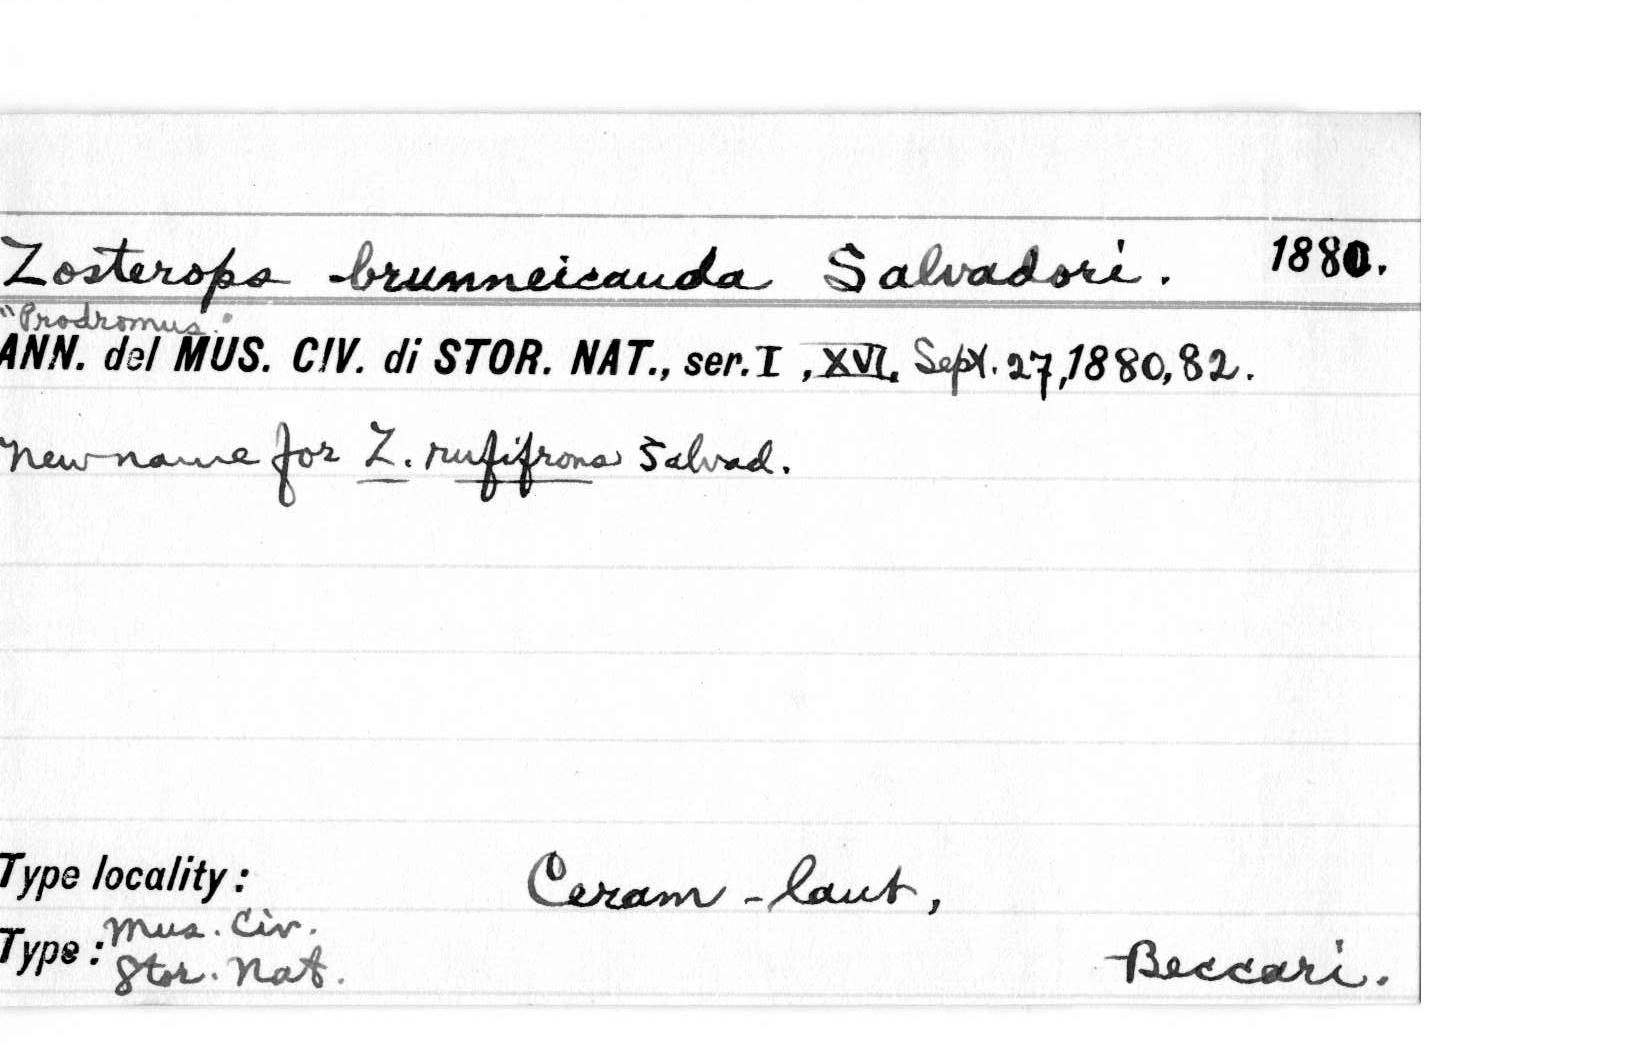 Zosterops brunneicauda Salvadori. 1880.
"Prodromus."
ANN. del MUS. CIV. di STOR. NAT., ser. I, XVI, Sept. 27, 1880, 82.
New name for Z. rufifrons Salvad.
Type locality: Ceram-laut,
Mus. Civ.
Type: Stor. Nat.
Beccari.